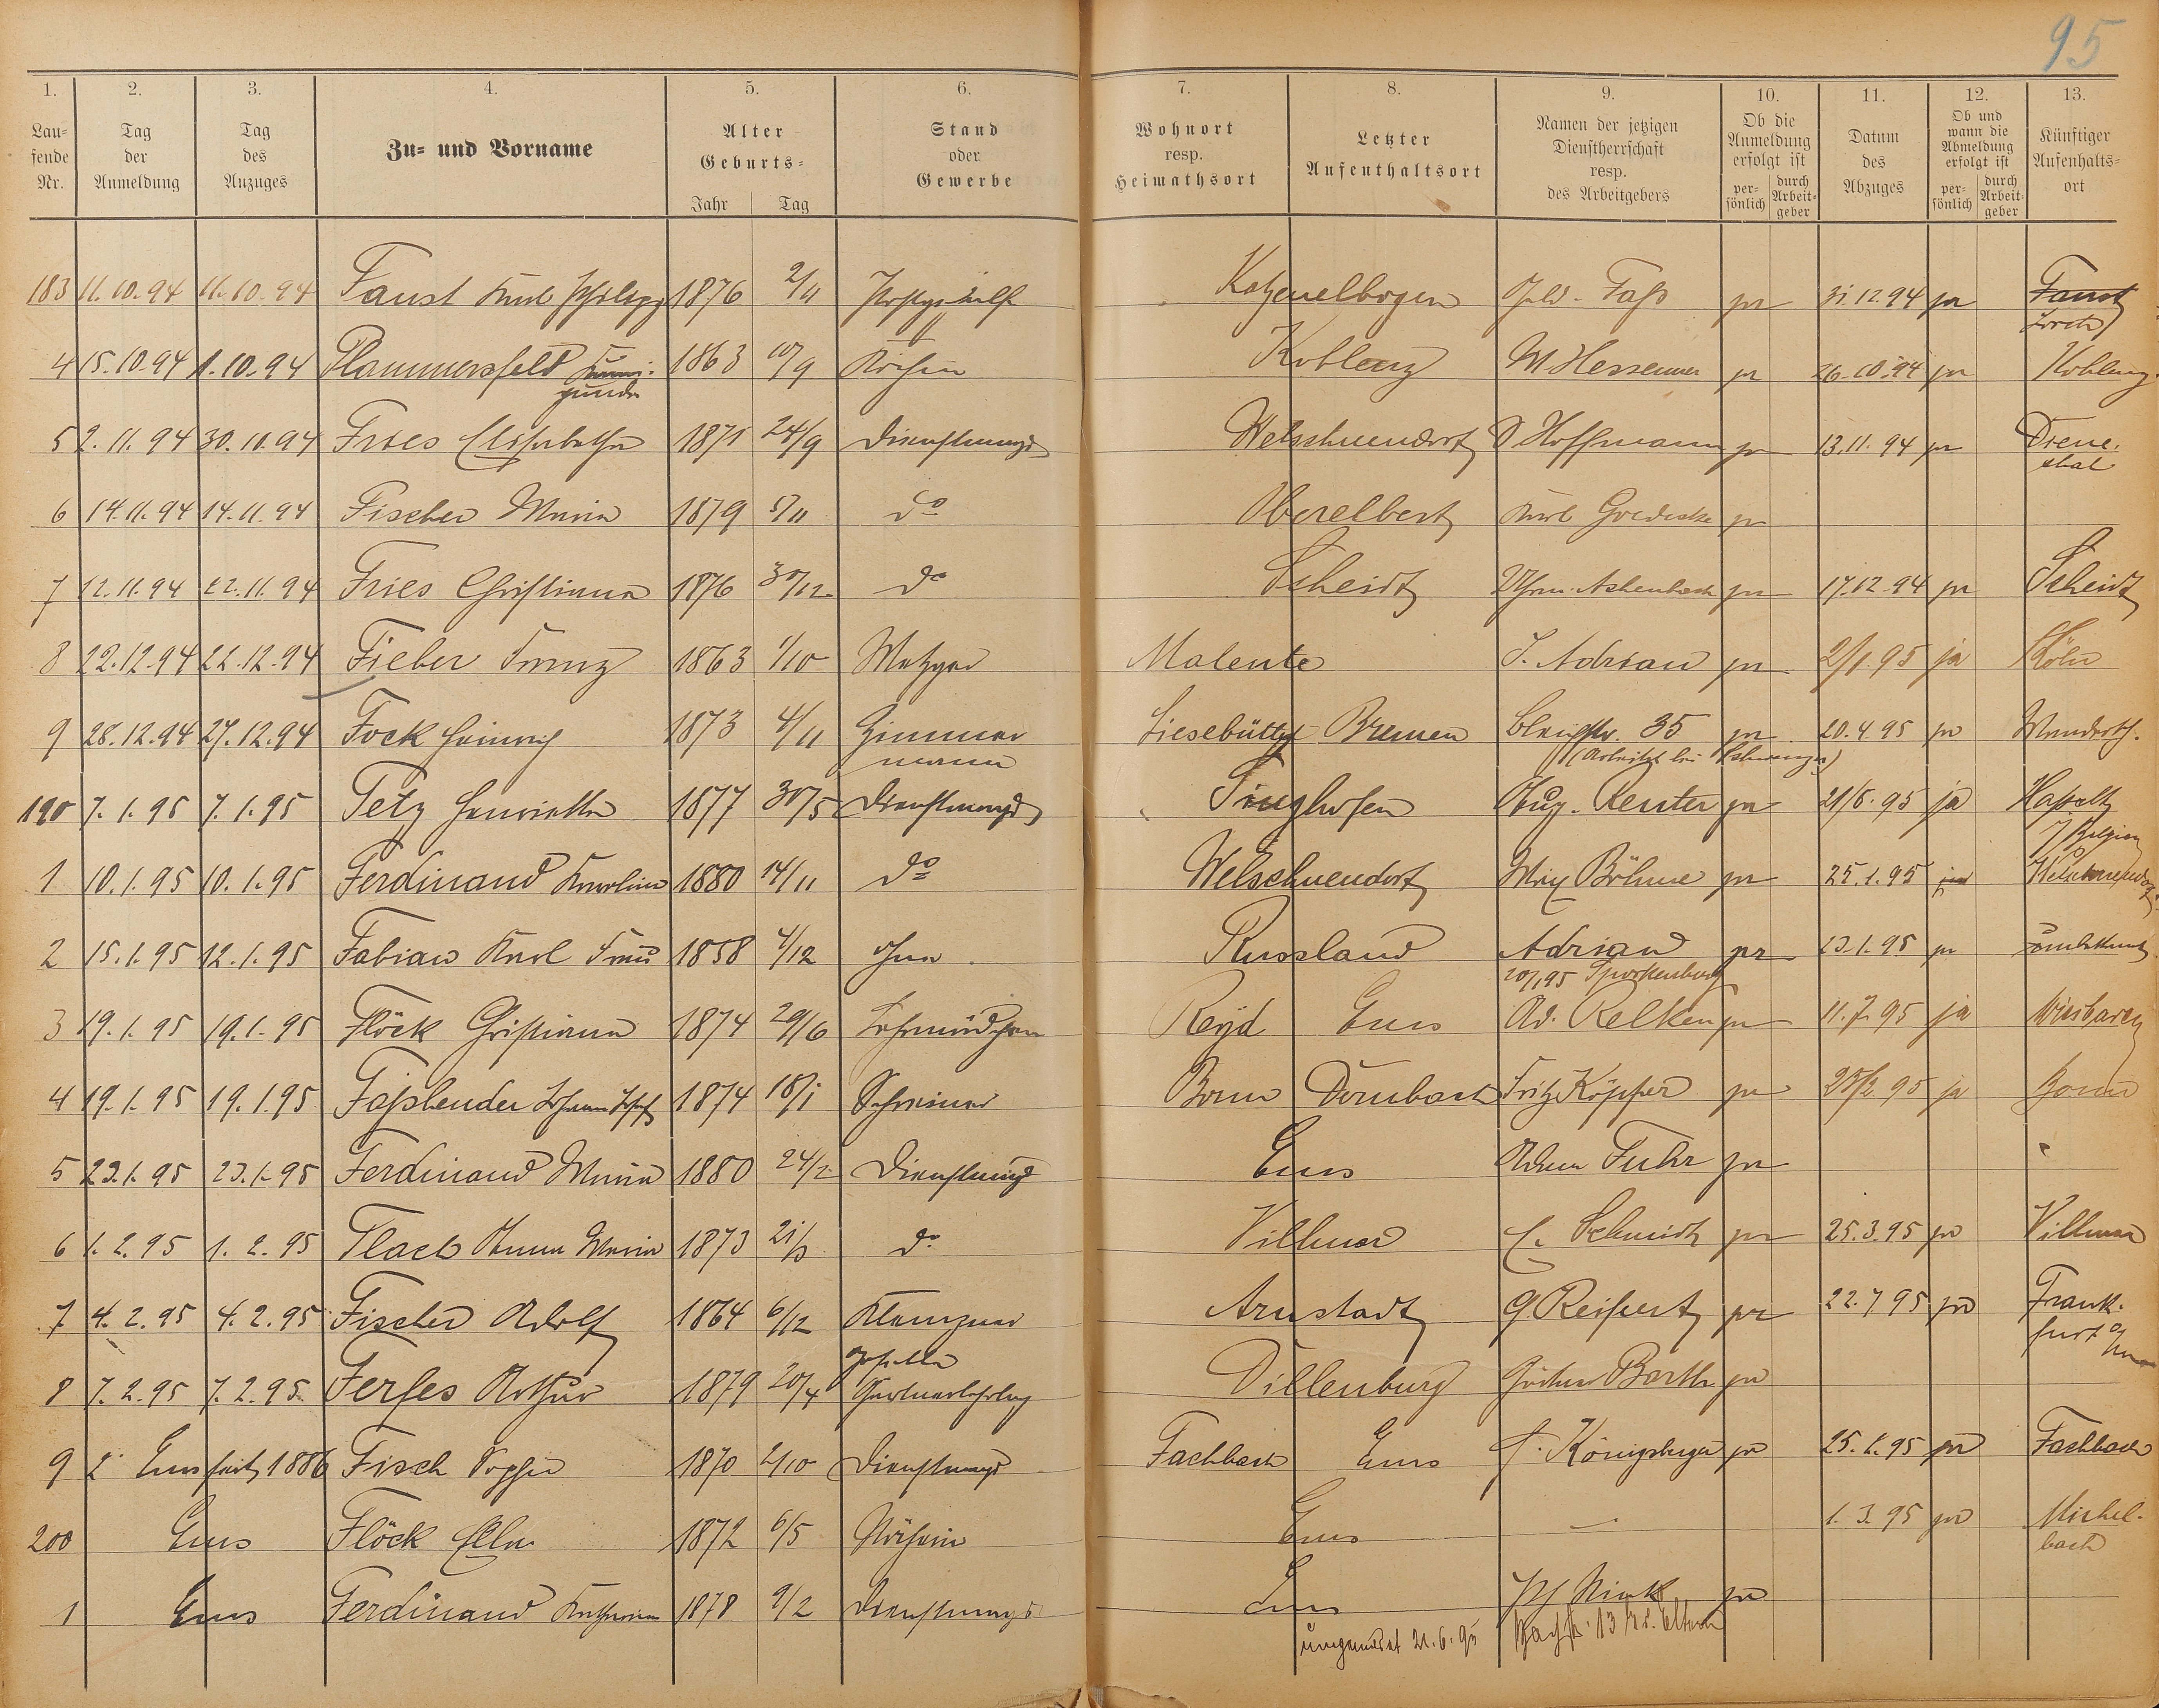 95
1. 2. 3. 4. 5. 6. 7. 8. 9. 10. 11. 12. 13.
Lau-
fende
Nr.
Tag
der
Anmeldung
Tag
des
Anzuges
Zu- und Vorname
Alter
Geburts-
Jahr Tag
Stand
oder
Gewerbe
Wohnort
resp.
Heimathsort
Letzter
Aufenthaltsort
Namen der jetzigen
Dienstherrschaft
resp.
des Arbeitgebers
Ob die
Anmeldung
erfolgt ist
per-
sönlich
durch
Arbeit-
geber
Datum
des
Abzuges
Ob und
wann die
Abmeldung
erfolgt ist
per-
sönlich
durch
Arbeit-
geber
Künftiger
Aufenthalts-
ort
183 11.10.94 11.10.94 Faust Karl Philipp 1876 2/11 Postgehilfe Katzenelbogen Fass ja 31.12.94 ja Faust
4 15.10.94 1.10.94 Plammersfeld Kuni- 1863 10/9 Köchin Koblenz W Hessemer ja 26.10.94 ja Koblenz
gunde
5 2.11.94 30.10.94 Fries Elisabetha 1871 24/9 Dienstmagd Welschneudorf Hoffmann ja 13.11.94 ja Diene-
thal
6 14.11.94 14.11.94 Fischer Maria 1879 5/11 do Oberelbert Karl Goedecke ja
7 12.11.94 12.11.94 Fries Christiana 1876 30/12 do Scheidt Achenbach ja 17.12.94 ja Scheidt
8 22.12.94 22.12.94 Fieber Franz 1863 1/10 Metzger Malente J. Adrian ja 2/1.95 ja Köln
9 28.12.94 27.12.94 Fock Heinrich 1873 4/11 Zimmer Bremen 35 ja 20.4.95 ja
mann (Arbeitet bei
190 7.1.95 7.1.95 Fetz Henrietta 1877 30/5 Dienstmagd Singhofen Aug. Reuter ja 21/6.95 ja Hasselt
Belgien
1 10.1.95 10.1.95 Ferdinand Karolina 1880 14/11 do Welschneudorf Max Böhme ja 25.1.95 ja Welschneudorf
2 15.1.95 12.1.95 Fabian Karl Frau 1858 4/12 ohne Russland Adrian ja 23.1.95 ja
20/1 95 Sporkenburg
3 19.1.95 19.1.95 Flöck Christiana 1874 29/6 Ems Ad. Relken ja 11.7.95 ja Wiesbaden
4 19.1.95 19.1.95 Fassbender Johann Josef 1874 18/1 Schreiner Bonn Dernbach Fritz Köpper ja 25/2 95 ja Bonn
5 23.1.95 23.1.95 Ferdinand Maria 1880 24/2 Dienstmagd Ems Adam Fuhr ja
6 1.2.95 1.2.95 Flach Anna Maria 1873 21/3 do Villmar C. Schmidt ja 25.3.95 ja Villmar
7 4.2.95 4.2.95 Fischer Adolf 1864 6/12 Klempner Arnstadt G. Reifert ja 22.7 95 ja Frank-
furt a/m
8 7.2.95 7.2.95 Ferfes Arthur 1879 20/4 Gärtnerlehrling Dillenburg Gärtner Barth ja
9 Ems seit 1886 Fisch Sophie 1870 2/10 Dienstmagd Fachbach Ems Königsberger ja 25.1.95 ja Fachbach
200 Ems Flöck Ella 1872 6/5 Näherin Ems — 1.3.95 ja Michel-
bach
1 Ems Ferdinand Katharina 1878 9/2 Dienstmagd Ems Nink ja
umgemeldet 21.6.95 13 Eltern